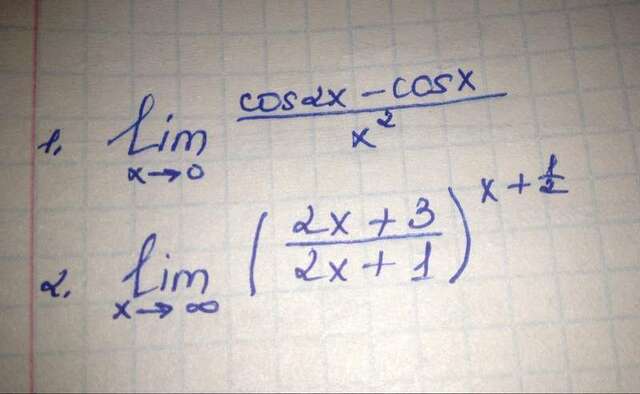 1. lim x→0 (cos2x − cosx)/x²
2. lim x→∞ ((2x + 3)/(2x + 1))^(x + 1/2)